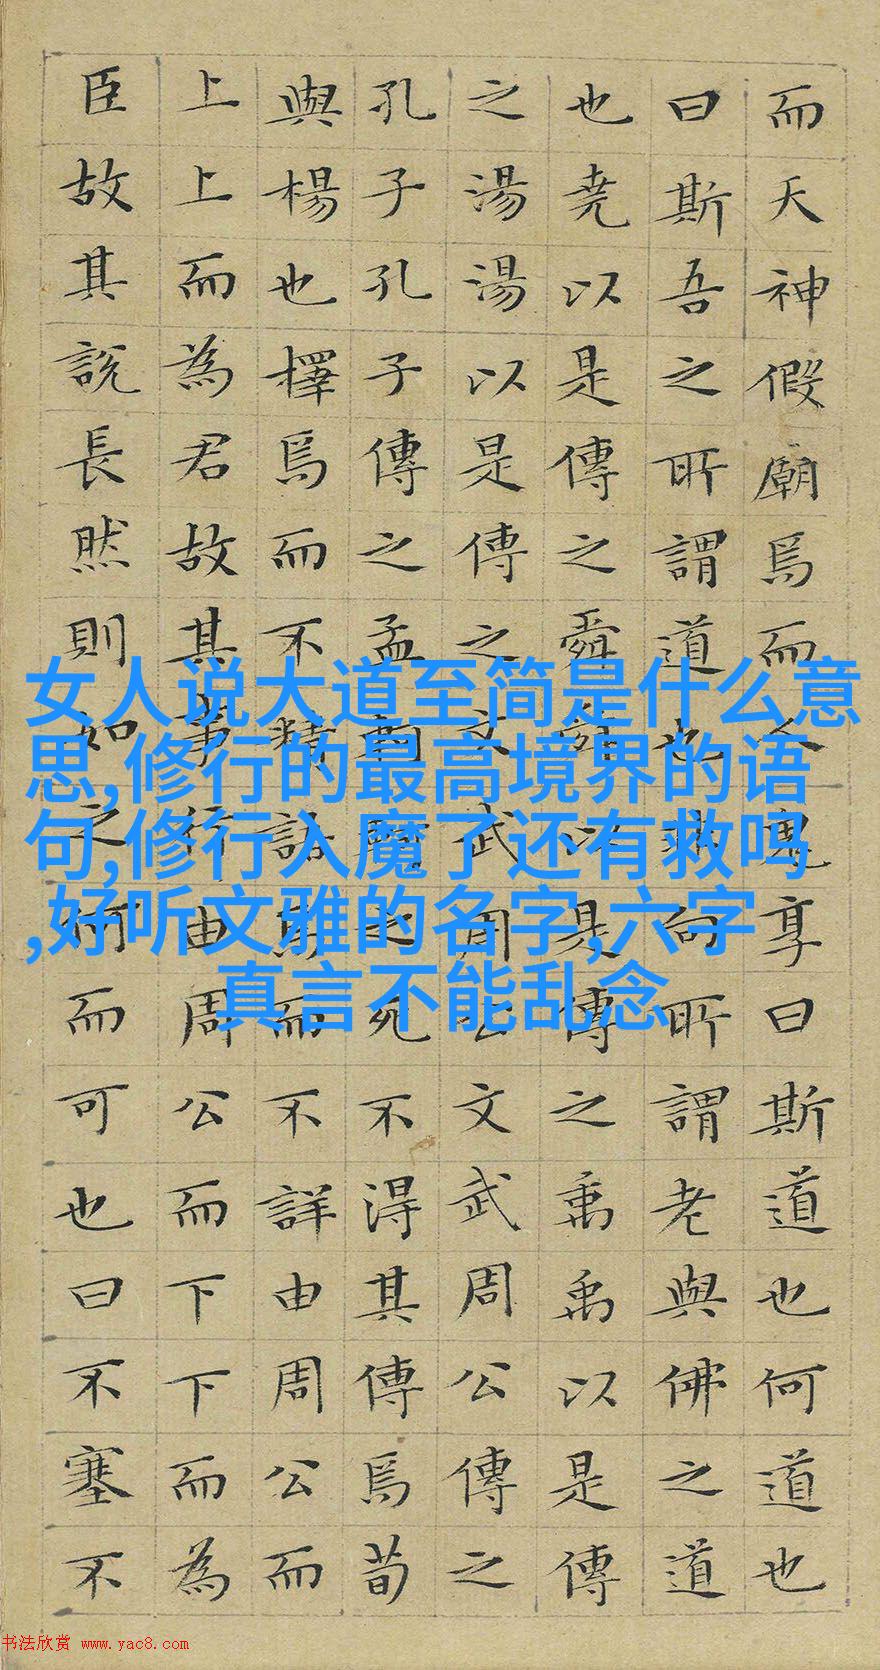 而天神假廟焉而人鬼享曰斯道也何道也
曰斯吾之所謂道也非向所謂老與佛之道
也堯以是傳之舜舜以是傳之禹禹以是傳
之湯湯以是傳之文武周公文武周公傳之
孔子孔子傳之孟軻軻之死不得其傳焉荀
與楊也擇焉而不精語焉而不詳由周公而
上上而為君故其事行由周公而下下而為
臣故其說長然則如之何而可也曰不塞不
女人说大道至简是什么意
思,修行的最高境界的语
句,修行入魔了还有救吗
,好听文雅的名字,六字
真言不能乱念
书法欣赏 www.yac8.com